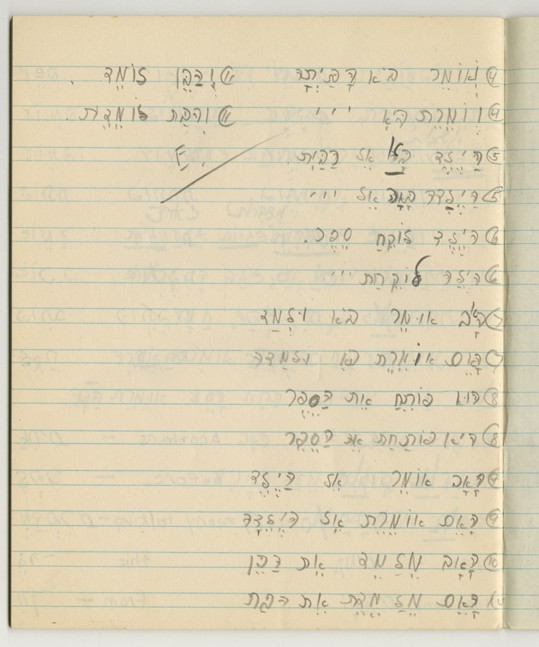 ④ אומר בא הביתה ⑪ והבן לומד .
④ אומרת בא " " ⑪ והבת לומדת .
⑤ הילד בא אל הבית E.
⑤ הילדה באה אל " "
⑥ הילד לוקח ספר .
⑥ הילד לוקחת " "
⑦ האב אומר בא ולמד
⑦ האם אומרת בא ולמדה
⑧ הוא פותח את הספר
⑧ היא פותחת את הספר
⑨ האב אומר אל הילד
⑨ האם אומרת אל הילדה
⑩ האב מלמד את הבן
⑩ האם מלמדת את הבת